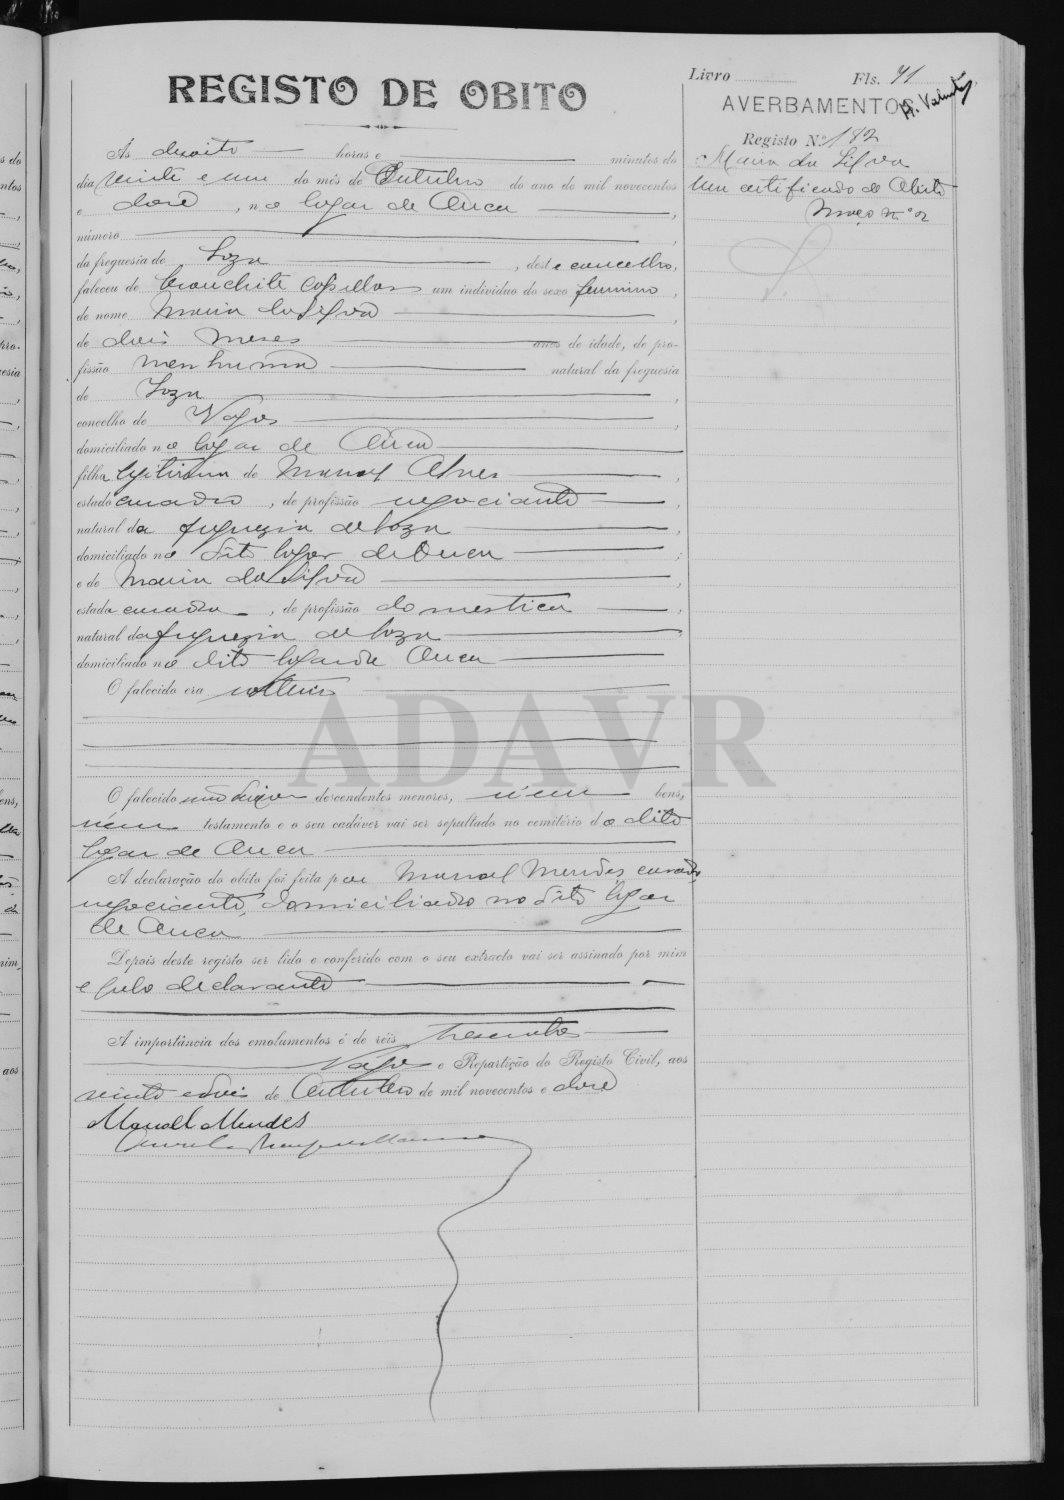 REGISTO DE OBITO
Livro Fls. 41
AVERBAMENTOS
Registo N.º 182
Maria da Silva
Um certificado de Obito
Março nº 2
Às dezoito horas e minutos do
dia vinte e um do mês de Outubro do ano de mil novecentos
e doze, no logar de Ouca,
número,
da freguesia de Soza, deste concelho,
faleceu de bronchite capillar um individuo do sexo feminino,
de nome Maria da Silva,
de dois meses anos de idade, de pro-
fissão nenhuma natural da freguesia
de Soza,
concelho de Vagos,
domiciliado no logar de Ouca
filha legitima de Manoel Alves,
estado casado, de profissão negociante,
natural da freguezia de Soza,
domiciliado no dito logar de Ouca;
e de Maria da Silva,
estado casada, de profissão domestica,
natural da freguezia de Soza,
domiciliado no dito logar de Ouca
O falecido era solteiro
O falecido não deixou descendentes menores, nem bens,
nem testamento e o seu cadáver vai ser sepultado no cemitério do dito
logar de Ouca
A declaração do obito foi feita por Manoel Mendes, casado,
negociante, domiciliado no dito logar
de Ouca
Depois deste registo ser lido e conferido com o seu extracto vai ser assinado por mim
e pelo declarante
A importância dos emolumentos é de réis trezentos
Vagos e Repartição do Registo Civil, aos
vinte e dois de Outubro de mil novecentos e doze
Manoel Mendes
ADAVR